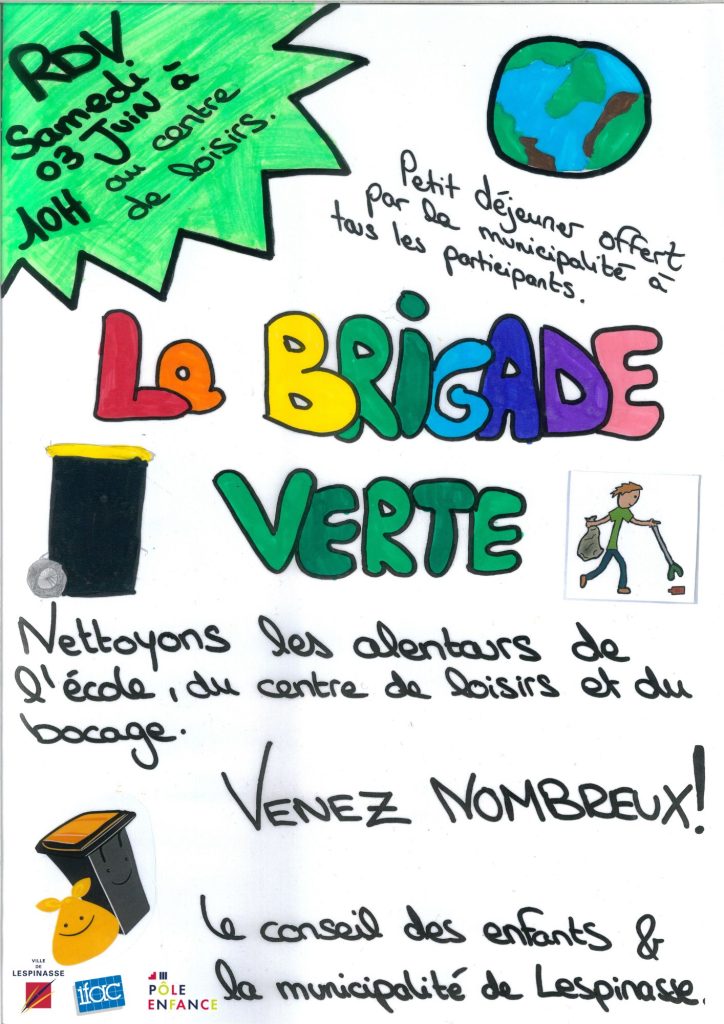 RDV
Samedi
03 Juin à
10H au centre
de loisirs.
Petit déjeuner offert
par la municipalité à
tous les participants.
La BRIGADE
VERTE
Nettoyons les alentours de
l'école, du centre de loisirs et du
bocage.
VENEZ NOMBREUX!
Le conseil des enfants &
la municipalité de Lespinasse.
VILLE
DE
LESPINASSE
ifac
PÔLE
ENFANCE